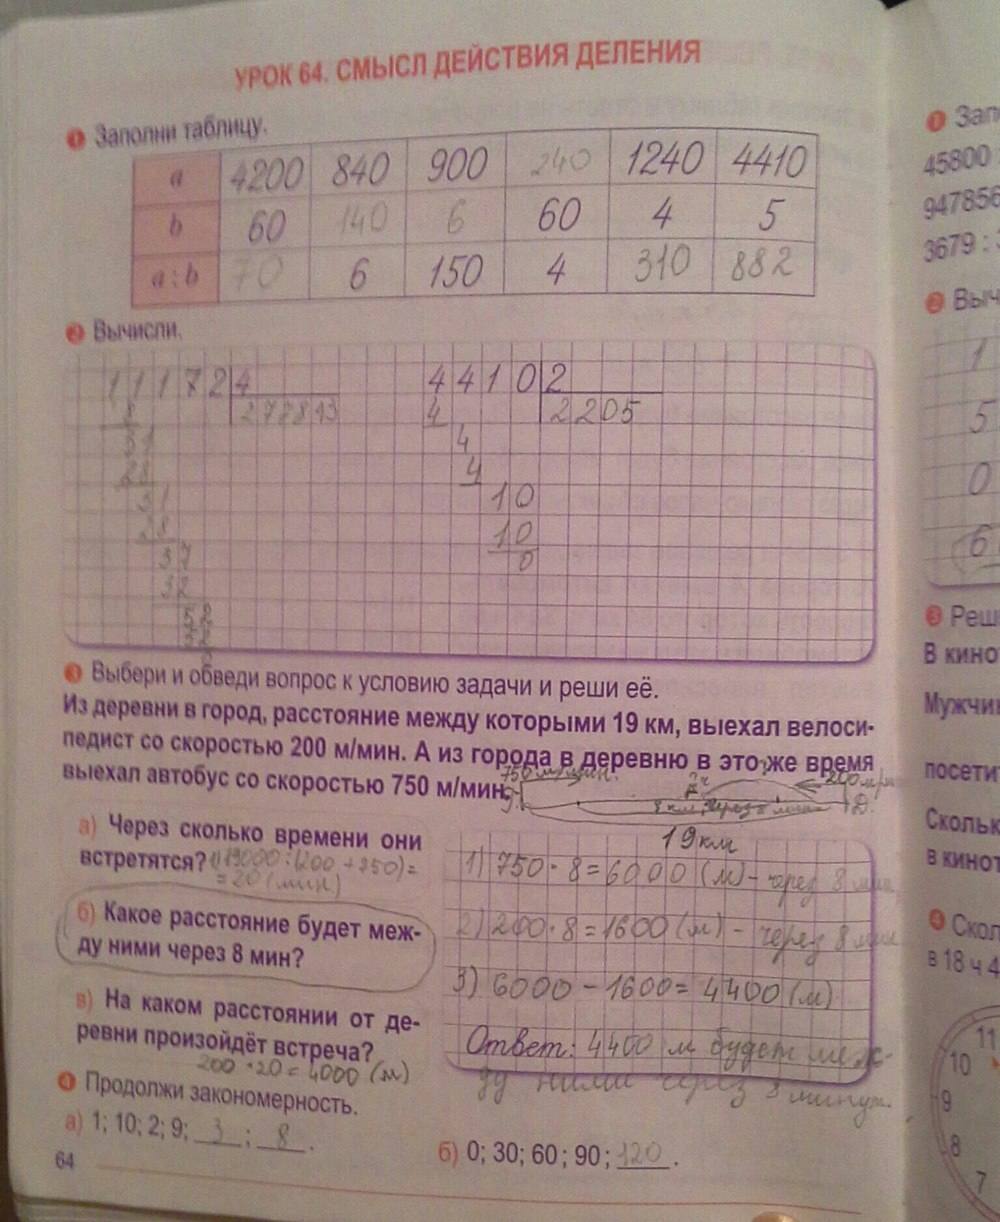 УРОК 64. СМЫСЛ ДЕЙСТВИЯ ДЕЛЕНИЯ
1 Заполни таблицу.
a 4200 840 900 240 1240 4410
b 60 140 6 60 4 5
a : b 70 6 150 4 310 882
2 Вычисли.
11172 4 44102
4 2205
4
4
10
10
0
37
32
52
3 Выбери и обведи вопрос к условию задачи и реши её.
Из деревни в город, расстояние между которыми 19 км, выехал велоси-
педист со скоростью 200 м/мин. А из города в деревню в это же время
выехал автобус со скоростью 750 м/мин.
750 м/мин.
Д.
19 км
а) Через сколько времени они
встретятся? 1) 19000 : (200 + 750) =
= 20 (мин)
б) Какое расстояние будет меж-
ду ними через 8 мин?
в) На каком расстоянии от де-
ревни произойдёт встреча?
200 · 20 = 4000 (м)
1) 750 · 8 = 6000 (м) - через 8 мин
2) 200 · 8 = 1600 (м) - через 8 мин
3) 6000 - 1600 = 4400 (м)
Ответ: 4400 м будет меж-
ду ними через 8 минут.
4 Продолжи закономерность.
а) 1; 10; 2; 9; 3 ; 8 .
б) 0; 30; 60; 90; 120 .
64
1 Запо
45800
947856
3679 :
2 Выч
1
5
0
6
3 Реш
В кино
Мужчин
посети
Скольк
в кинот
4 Скол
в 18 ч 4
11
10
9
8
7